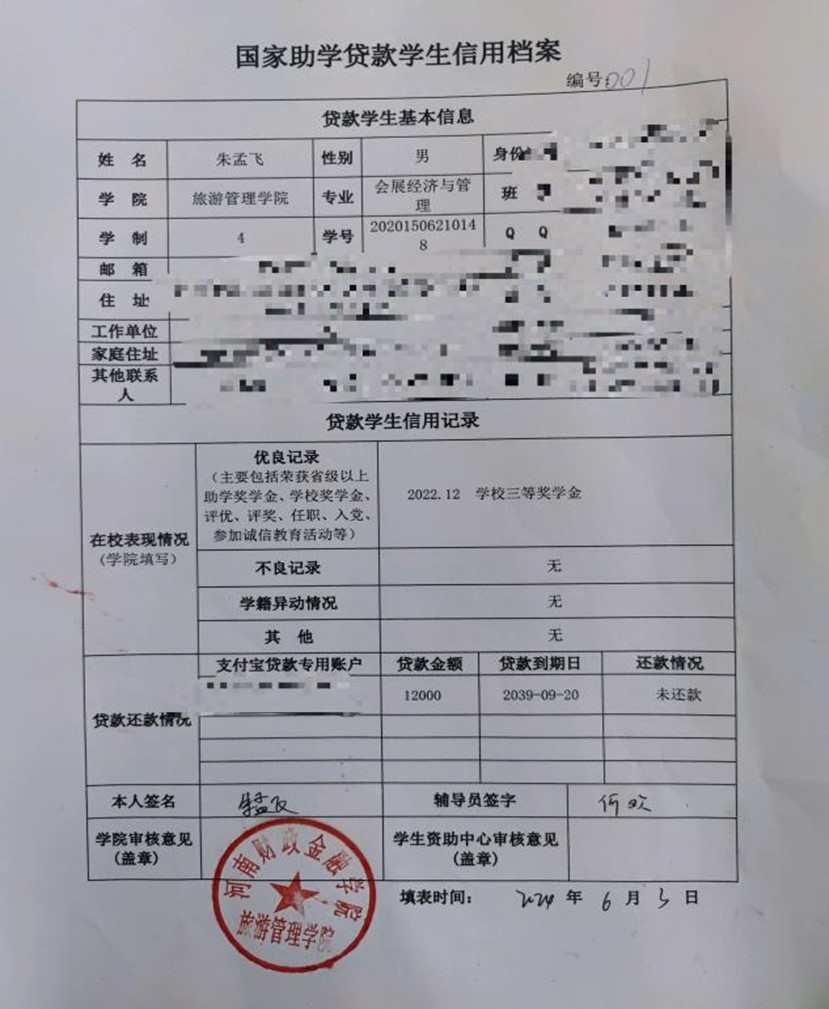 国家助学贷款学生信用档案
编号:001
贷款学生基本信息
姓 名 朱孟飞 性别 男 身份
学 院 旅游管理学院 专业 会展经济与管理 班
学 制 4 学号 20201506210148 Q Q
邮 箱
住 址
工作单位
家庭住址
其他联系人
贷款学生信用记录
在校表现情况
(学院填写)
优良记录
(主要包括荣获省级以上
助学奖学金、学校奖学金、
评优、评奖、任职、入党、
参加诚信教育活动等)
2022.12 学校三等奖学金
不良记录 无
学籍异动情况 无
其 他 无
贷款还款情况
支付宝贷款专用账户 贷款金额 贷款到期日 还款情况
12000 2039-09-20 未还款
本人签名 朱孟飞 辅导员签字
学院审核意见
(盖章)
学生资助中心审核意见
(盖章)
河南财政金融学院
旅游管理学院
填表时间: 2024 年 6 月 3 日